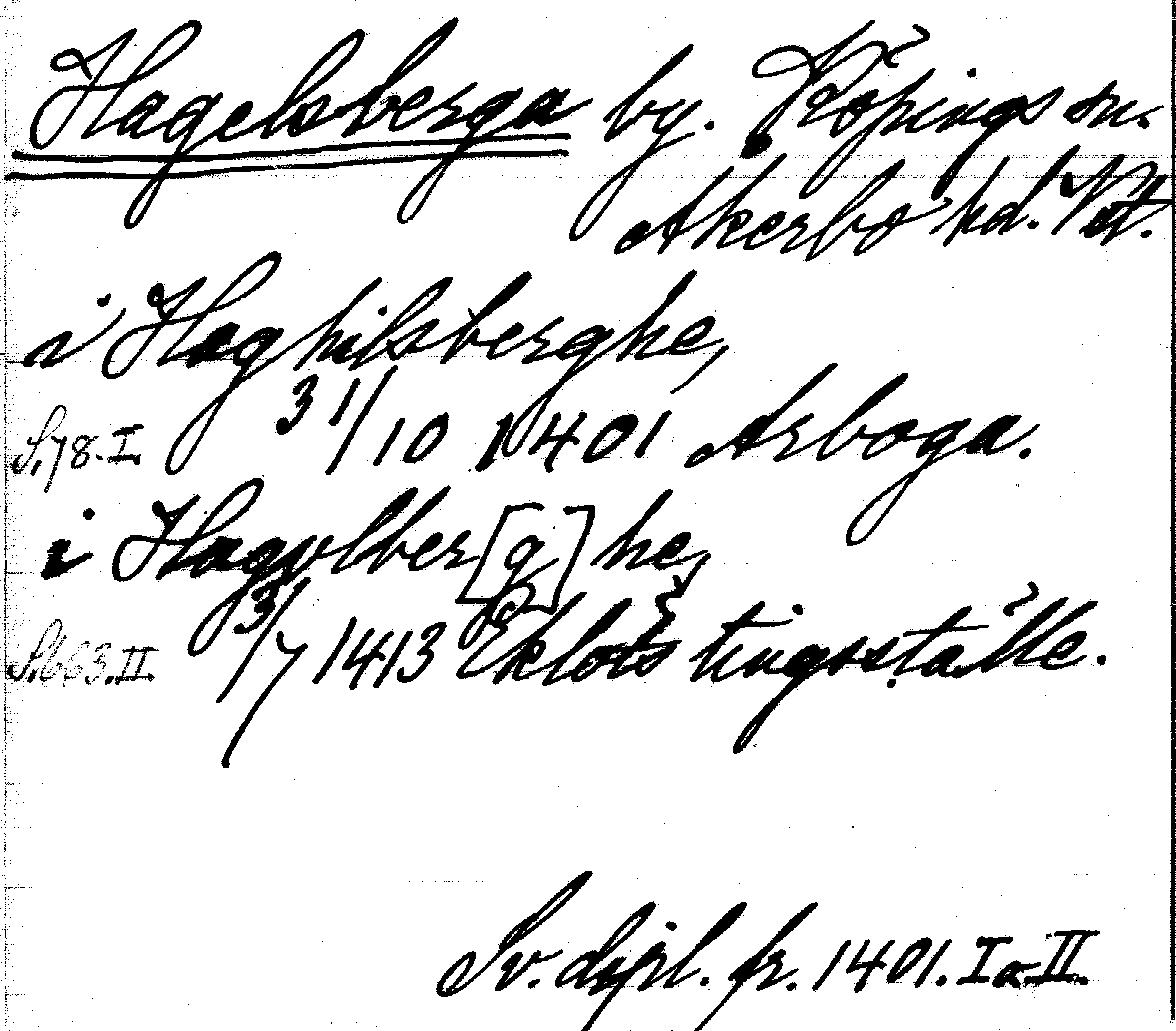 Hagelsberga by. Köpings sn.
Åkerbo hd. Vst.
i Haghilsberghe,
S. 78. I. 31/10 1401 Arboga.
i Hagulber[g]he,
S. 663. II. 3/7 1413 Eklots tingsställe.
Sv. dipl. fr. 1401. I o. II.